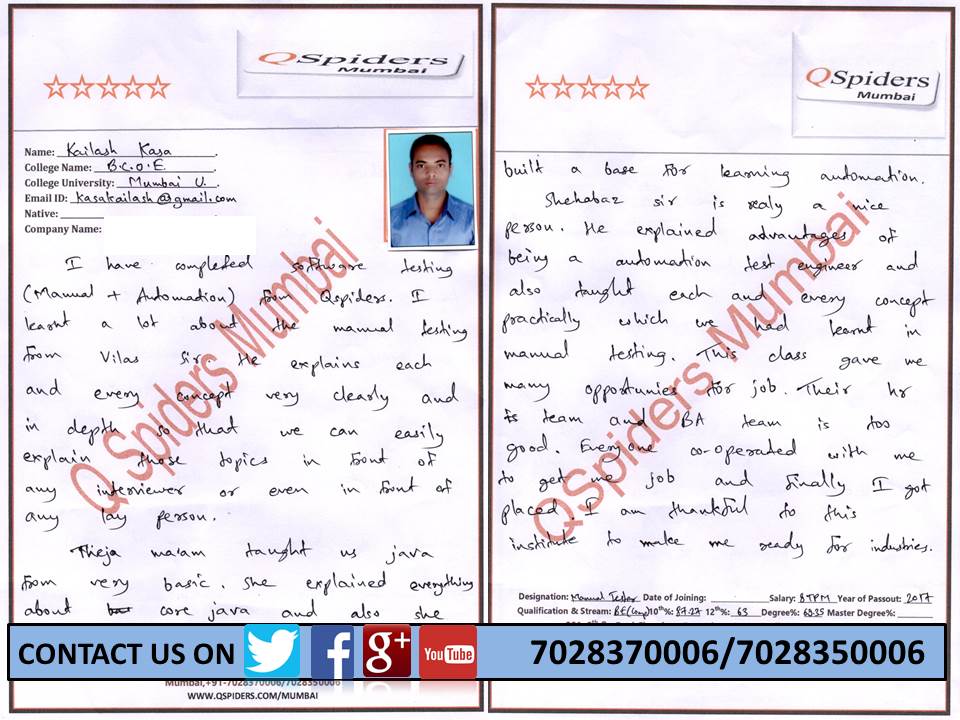 QSpiders
Mumbai
Name: Kailash Kasa
College Name: B.C.O.E.
College University: Mumbai U.
Email ID: kasakailash@gmail.com
Native:
Company Name:
I have completed software testing
(Manual + Automation) from Qspiders. I
learnt a lot about the manual testing
from Vilas Sir. He explains each
and every concept very clearly and
in depth so that we can easily
explain those topics in front of
any interviewer or even in front of
any lay person.
Theja ma'am taught us java
from very basic. She explained everything
about core java and also she
Q Spiders Mumbai
Mumbai,+91-7028370006/7028350006
WWW.QSPIDERS.COM/MUMBAI
QSpiders
Mumbai
built a base for learning automation.
Shehabaz sir is realy a nice
person. He explained advantages of
being a automation test engineer and
also taught each and every concept
practically which we had learnt in
manual testing. This class gave me
many opportunies for job. Their hr
team and BA team is too
good. Everyone co-operated with me
to get me job and finally I got
placed. I am thankful to this
institute to make me ready for industries.
QSpiders Mumbai
Designation: Manual Tester Date of Joining: Salary: 8TPM Year of Passout: 2017
Qualification & Stream: BE(Comp) 10th%: 87.27 12th%: 63 Degree%: 60.35 Master Degree%:
CONTACT US ON
f
g+
You Tube
7028370006/7028350006